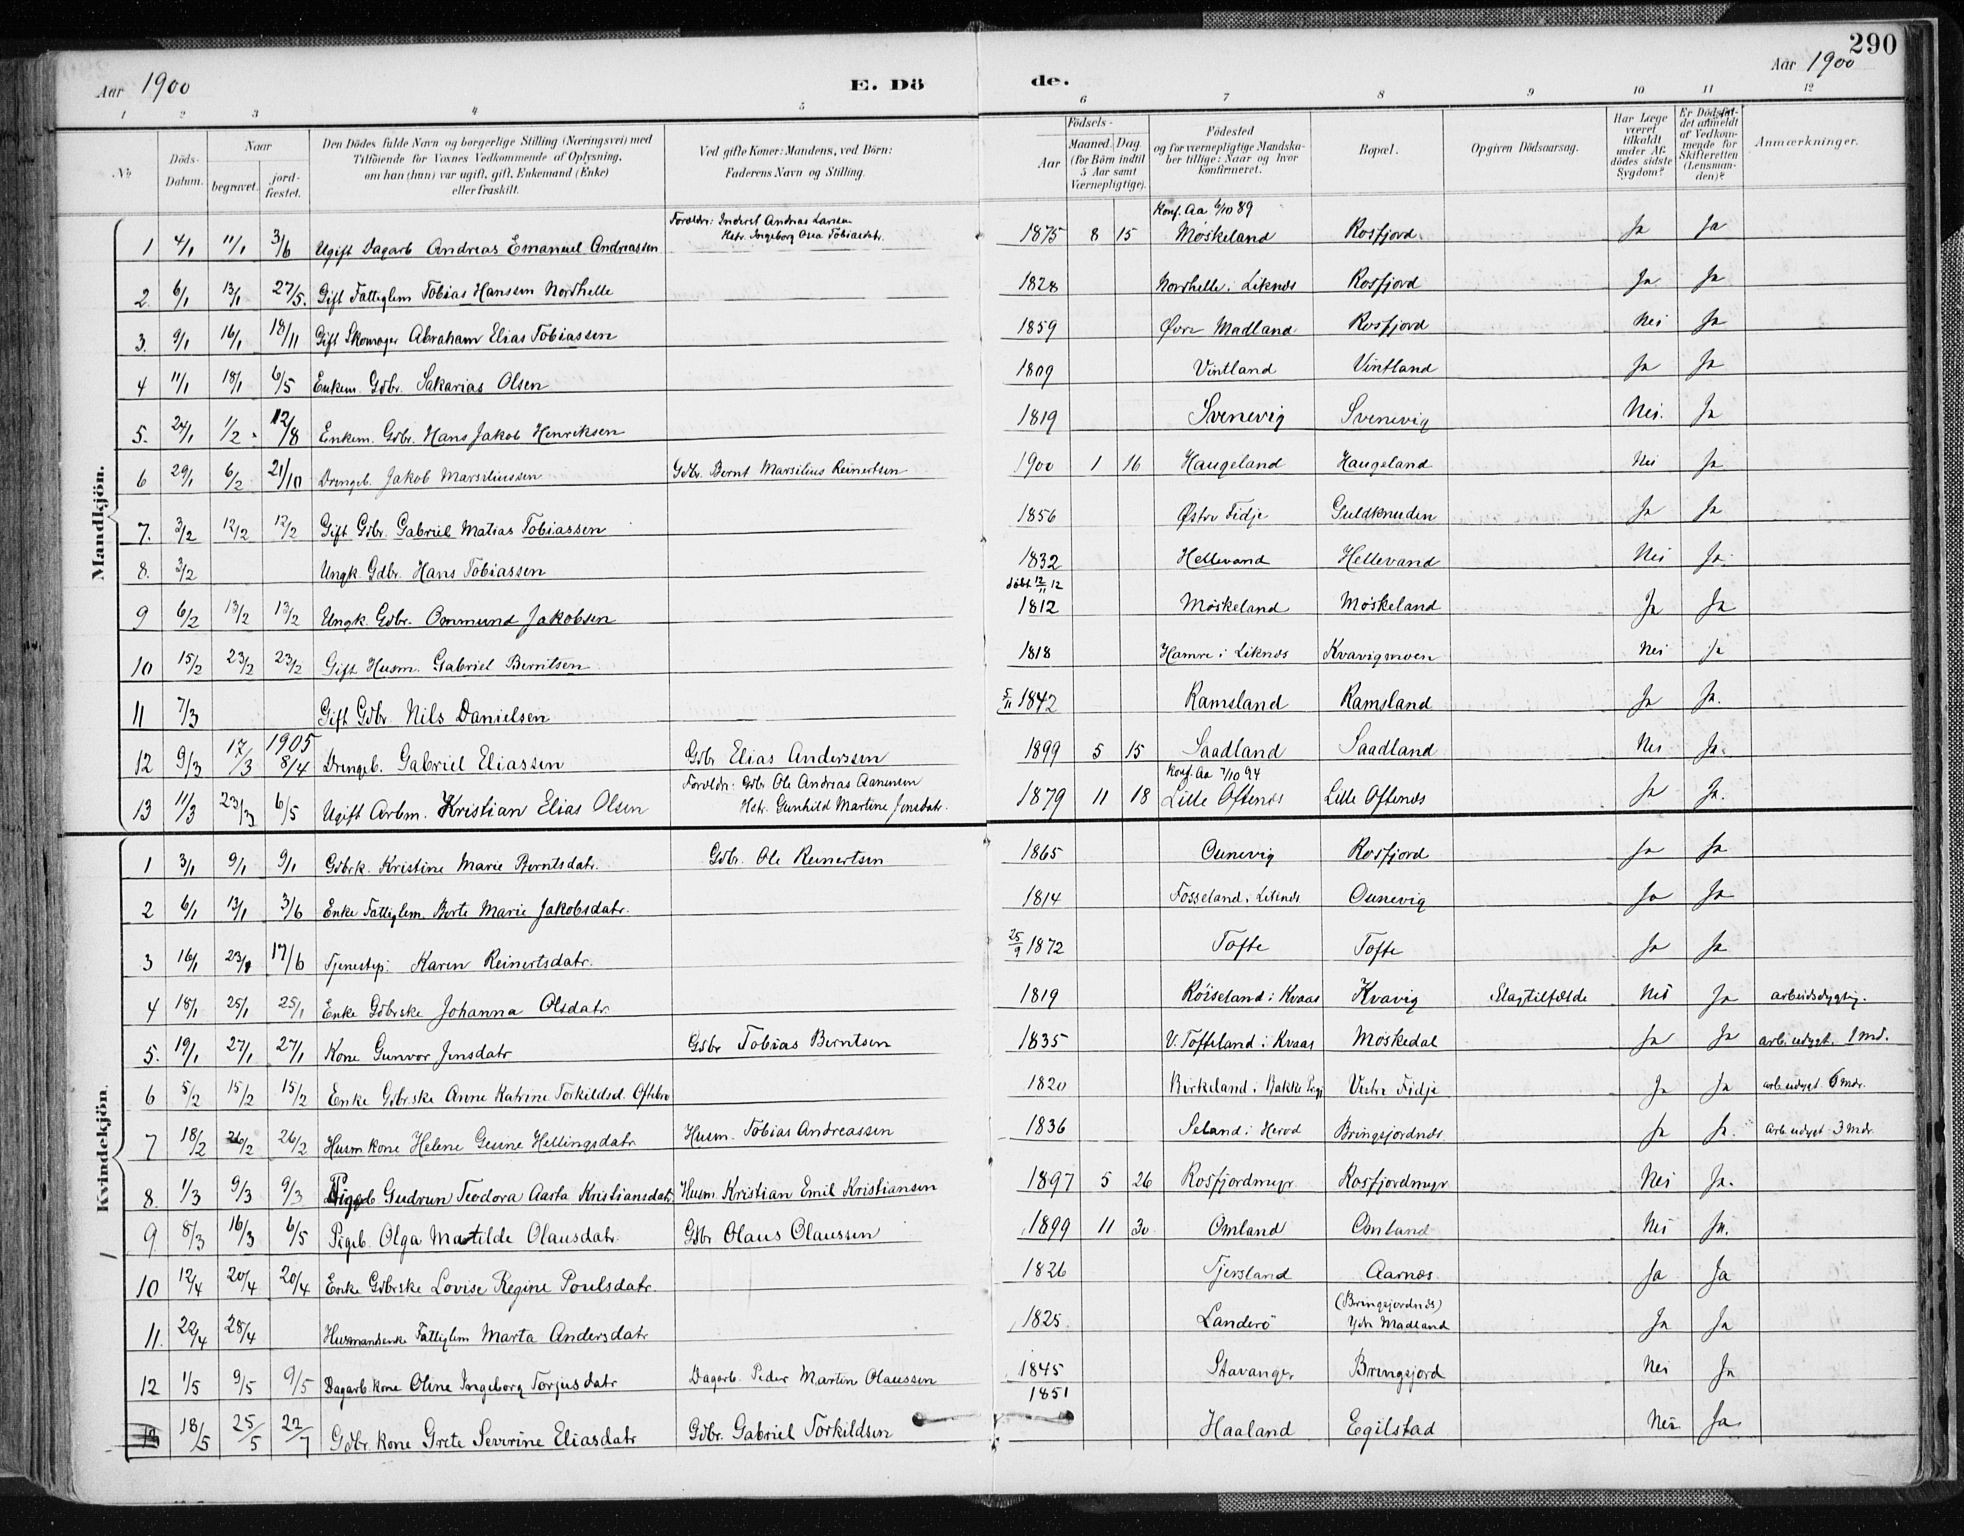 290
Aar 1900 E. Dö de. Aar 1900
1 2 3 4 5 6 7 8 9 10 11 12
№ Döds-Datum. Naar begravet. jord-fæstet. Den Dödes fulde Navn og borgerlige Stilling (Næringsvei) med Tilföiende for Voxnes Vedkommende af Oplysning, om han (hun) var ugift, gift, Enkemand (Enke) eller fraskilt. Ved gifte Koner: Mandens, ved Börn: Faderens Navn og Stilling. Födsels- Aar Maaned Dag (for Börn indtil 5 Aar samt Værnepligtige). Födested og for værnepligtige Mandska-ber tillige: Naar og hvor konfirmeret. Bopæl. Opgiven Dödsaarsag. Har Læge været tilkaldt under Af-dödes sidste Sygdom? Er Dödsfal-det anmeldt af Vedkom-mende for Skifteretten (Lensman-den)? Anmærkninger.
Mandkjön.
1 4/1 11/1 3/6 Ugift Dagarb Andreas Emanuel Andreassen Foreldr: Inderst Andreas Larsen Hstr. Ingeborg Osea Tobiasdatr. 1875 8 15 Konf. Aa 6/10 89 Møskeland Rosfjord Ja Ja
2 6/1 13/1 27/5. Gift Fattiglem Tobias Hansen Nordhelle 1828 Nordhelle i Liknes Rosfjord Ja Ja
3. 9/1 16/1 18/11 Gift Skomager Abraham Elias Tobiassen 1859 Øvre Madland Rosfjord Nei Ja
4 11/1 18/1 6/5 Enkem. Gdbr. Sakarias Olsen 1809 Vintland Vintland Ja Ja
5. 24/1 1/2 12/8 Enkem. Gdbr. Hans Jakob Henriksen 1819 Svenevig Svenevig Nei. Ja
6 29/1 6/2 21/10 Drengeb. Jakob Marsiliussen Gdbr. Bernt Marsilius Reinertsen 1900 1 16 Haugeland Haugeland Nei Ja
7. 3/2 12/2 12/2 Gift Gdbr. Gabriel Matias Tobiassen 1856 Østre Fidje Guldknuden Ja Ja
8. 3/2 Ungk. Gdbr. Hans Tobiassen 1832 Hellevand Hellevand Nei Ja
9 6/2 13/2 13/2 Ungk. Gdbr. Ommund Jakobsen døbt 12/11 12 1812 Møskeland Møskeland Ja Ja
10 15/2 23/2 23/2 Gift Husm. Gabriel Berntsen 1818 Hamre i Liknes Kvavigmoen Nei Ja
11 7/3 Gift Gdbr. Nils Danielsen 5/11 1842 Ramsland Ramsland Ja Ja.
12 9/3 17/3 1905 8/4 Drengeb. Gabriel Eliassen Gdbr Elias Anderssen 1899 5 15 Saadland Saadland Nei Ja.
13 11/3 23/3 6/5 Ugift Arbm. Kristian Elias Olsen Foreldr: Gdbr Ole Andreas Aanensen Hstr. Gunhild Martine Jensdatr. 1879 11 18 Konf. Aa 7/10 94 Lille Oftenes Lille Oftenes Ja Ja.
Kvindekjön.
1 3/1 9/1 9/1 Gdbrk. Kristine Marie Berntsdatr. Gdbr. Ole Reinertsen 1865 Ounevig Rosfjord Ja Ja
2 6/1 13/1 3/6 Enke Fattiglem. Berte Marie Jakobsdatr. 1814 Fosseland i Liknes Ounevig Ja Ja
3 16/1 23/1 17/6 Tjenestep: Karen Reinertsdatr. 25/9 1872 Tofte Tofte Ja Ja
4 18/1 25/1 25/1 Enke Gdbrske Johanna Olsdatr. 1819 Røiseland i Kvaas Kvavig Slagtilfælde Nei Ja arbeidsdygtig.
5. 19/1 27/1 27/1 Kone Gunvor Jensdatr Gdbr Tobias Berntsen 1835 V. Tofteland i Kvaas Møskedal Ja Ja arb. udygt. 1 md.
6 5/2 15/2 15/2 Enke Gdbr.ske Anne Katrine Torkildsd. Oftebro 1820 Birkeland i Bakke Pgj Vestre Fidje Ja Ja arb. udygt. 6 mdr.
7 18/2 26/2 26/2 Husm kone Helene Gesine Hellingsdatr. Husm. Tobias Andreassen 1836 Seland i Herod Bringsjordnes Ja Ja. arb. udygt. 3 mdr.
8. 1/3 9/3 9/3 Pigeb Gudrun Teodora Aasta Kristiansdatr. Husm. Kristian Emil Kristiansen 1897 5 26 Rosfjordmyr Rosfjordmyr Nei Ja.
9. 8/3 16/3 6/5 Pigeb. Olga Matilde Olausdatr. Gdbr Olaus Olaussen 1899 11 30 Omland Omland Nei Ja.
10 12/4 20/4 20/4 Enke Gdbrske Lovise Regine Poulsdatr. 1826 Tjersland Aarnes. Ja Ja
11. 22/4 28/4 Husmandsenke Fattiglem Marta Andersdatr 1825. Landerø (Bringsjordnes) Ydr Madland Ja Ja
12 1/5 9/5 9/5 Dagarb. kone Oline Ingeborg Torjusdatr Dagarb. Peder Martin Olaussen 1845 Stavanger Bringsjord Nei Ja
13 18/5 25/5 22/7 Gdbr. kone Grete Severine Eliasdatr Gdbr. Gabriel Torkildsen 1851 Haaland Egilstad Nei Ja